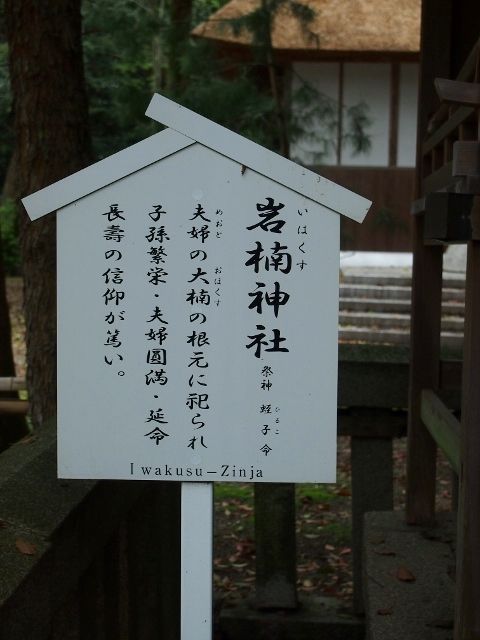 岩楠神社
いはくす
祭神 蛭子命
ひるこ
夫婦の大楠の根元に祀られ
めおと おほくす
子孫繁栄・夫婦圓満・延命
長壽の信仰が篤い。
Iwakusu-Zinja